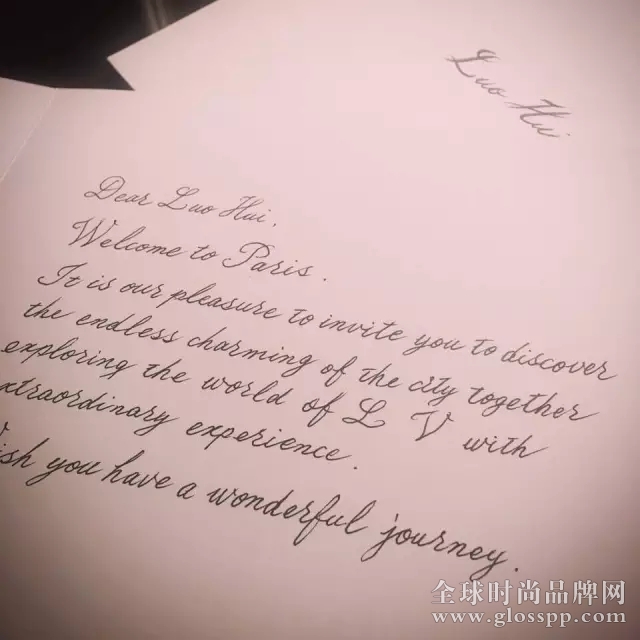 Luo Hui
Dear Luo Hui,
Welcome to Paris.
It is our pleasure to invite you to discover
the endless charming of the city together
exploring the world of L V with
xtraordinary experience.
ish you have a wonderful journey.
全球时尚品牌网
www.glosspp.com